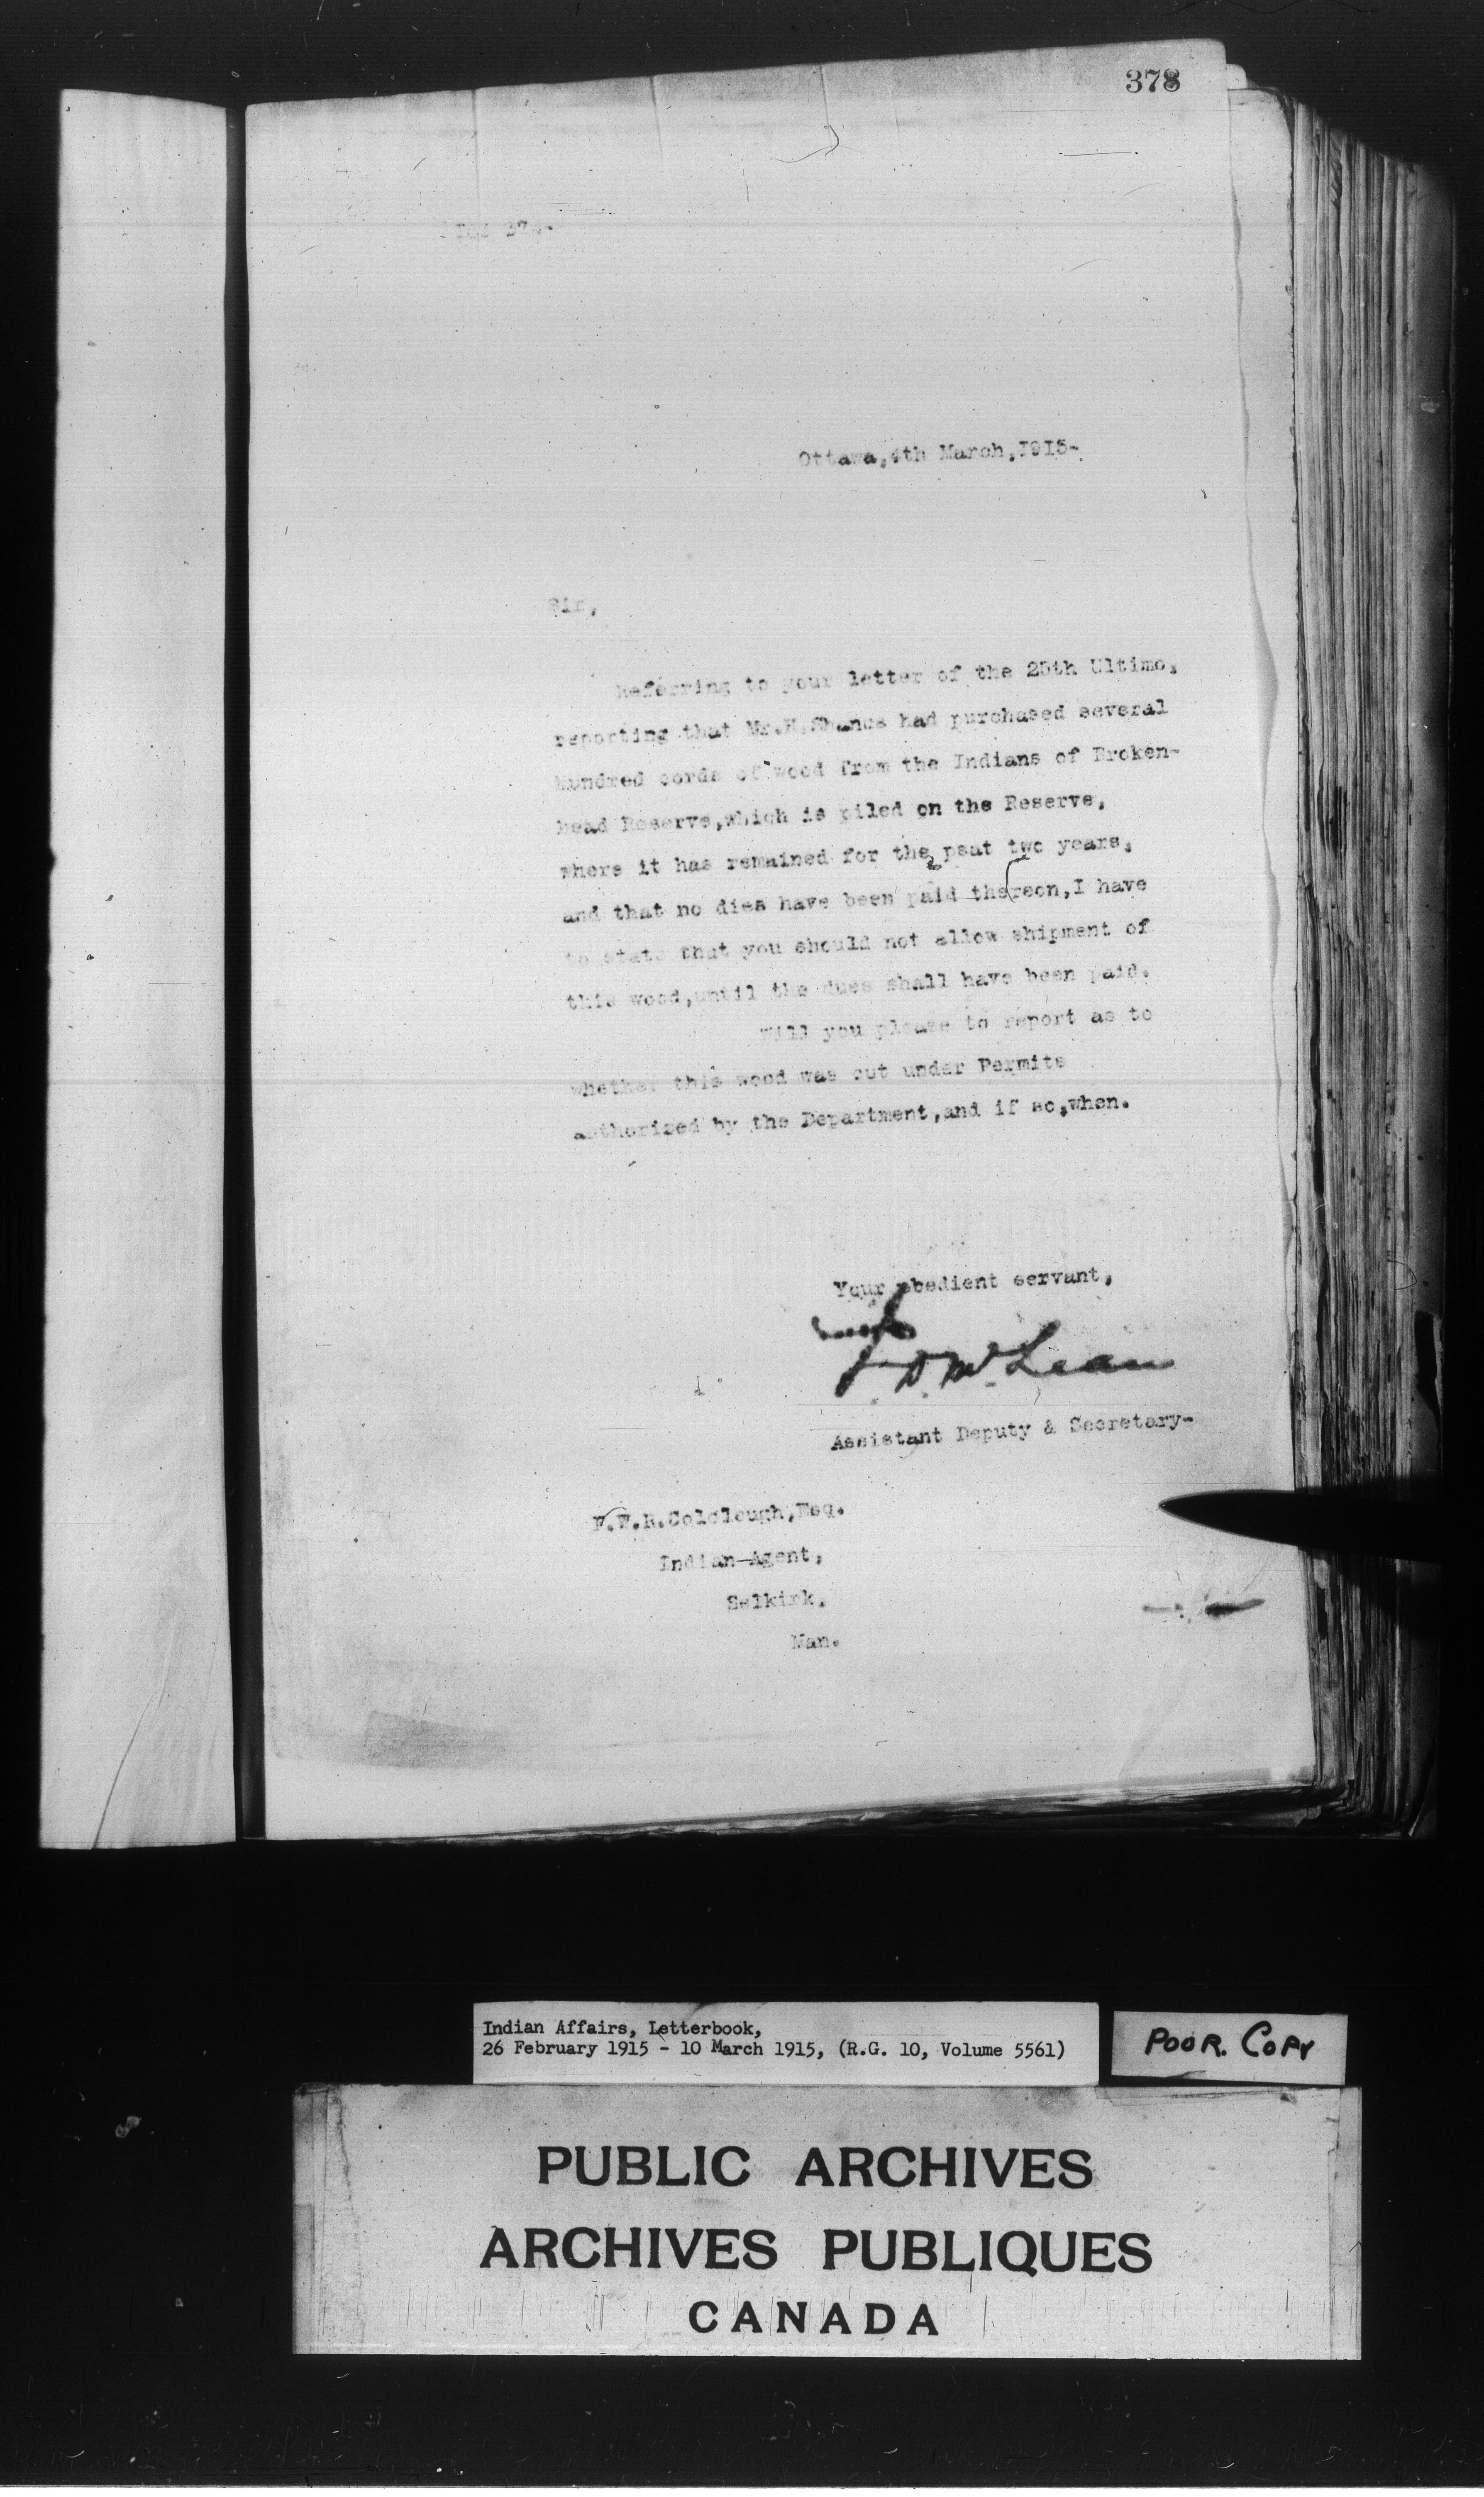 378
Ottawa,4th March,1915-
Sir,
Referring to your letter of the 25th Ultimo,
reporting that Mr.H. had purchased several
hundred cords of wood from the Indians of Broken-
head Reserve,which is piled on the Reserve,
where it has remained for the psat two years,
and that no dies have been paid thereon,I have
to state that you should not allow shipment of
this wood,until the dues shall have been paid.
Will you please to report as to
whether this wood was cut under Permits
authorized by the Department,and if so,when.
Your obedient servant,
J.D. McLean
Assistant Deputy & Secretary-
F.W.R.Colclough,Esq.
Indian-Agent,
Selkirk,
Man.
Indian Affairs, Letterbook,
26 February 1915 - 10 March 1915, (R.G. 10, Volume 5561)
POOR. COPY
PUBLIC ARCHIVES
ARCHIVES PUBLIQUES
CANADA